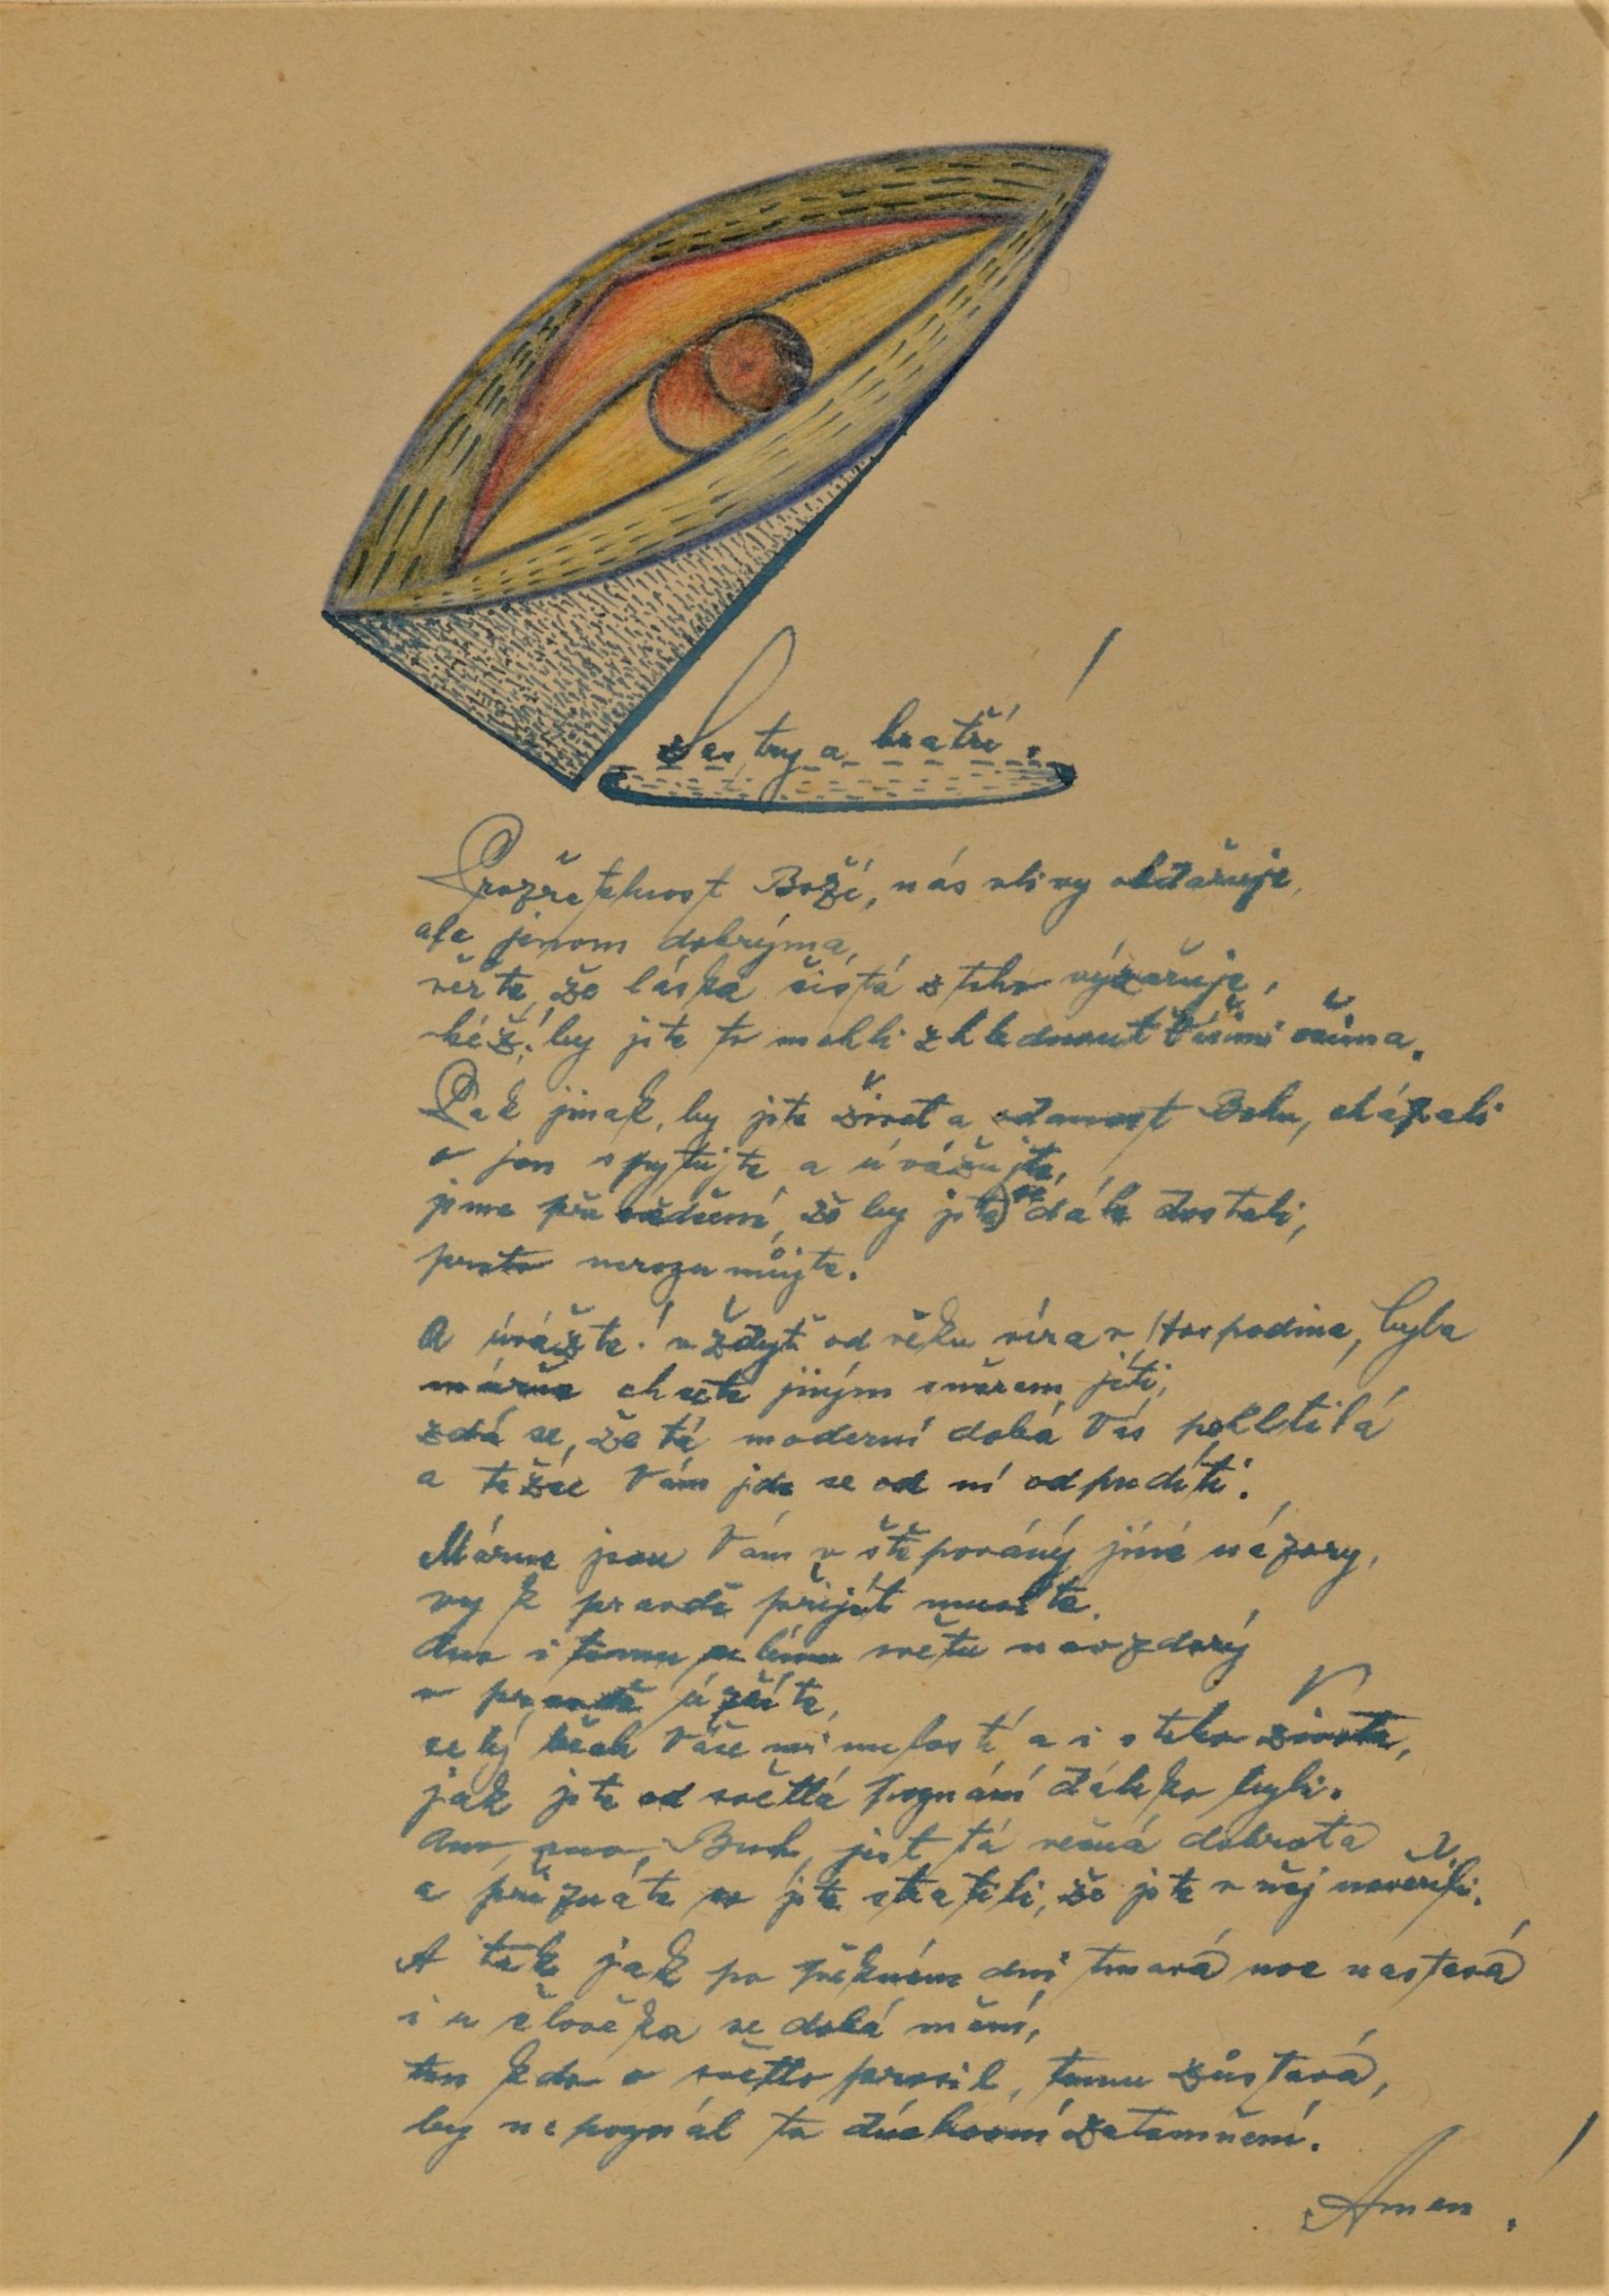 Sestry a bratři!
Prozřetelnost Boží, nás vlivy obdařuje,
ale jenom dobrýma,
věřte, že láska čistá z toho vyzařuje,
kéž! by jste to mohli zhlednout těmi očima.
Pak jinak, by jste život a oddanost Bohu, chápali
o jen spytujte a úvážujte,
jsme přisvědčení, že by jste se dále dostali,
proto nerozumujte.
A úvážte! vždyť od věku víra v Hospodina, byla
márně chcete jiným směrem jíti,
zdá se, že tá moderní dobá Vás pohltilá
a težce Vám jde se od ní odpudíti.
Márně jsou Vám vštěpováný jiné názory,
vy k pravdě přijíti musíte.
Ano i tomu celému světu navzdorý
v pravdě úzříte,
celý běh Váše minulosti a i toho života,
jak jste od světlá poznání dáleko byli.
Ano, ano, Buh, jest tá večná dobrota
a přiznáte co jste ztratili, že jste v něj nevěřili.
A tak jak po pěkném dni tmavá noc nastavá
i u člověka se dobá mění,
ten kdo o světlo prosil, tomu zůstavá,
by nepoznal to dúchovní zatemnění.
Amen!